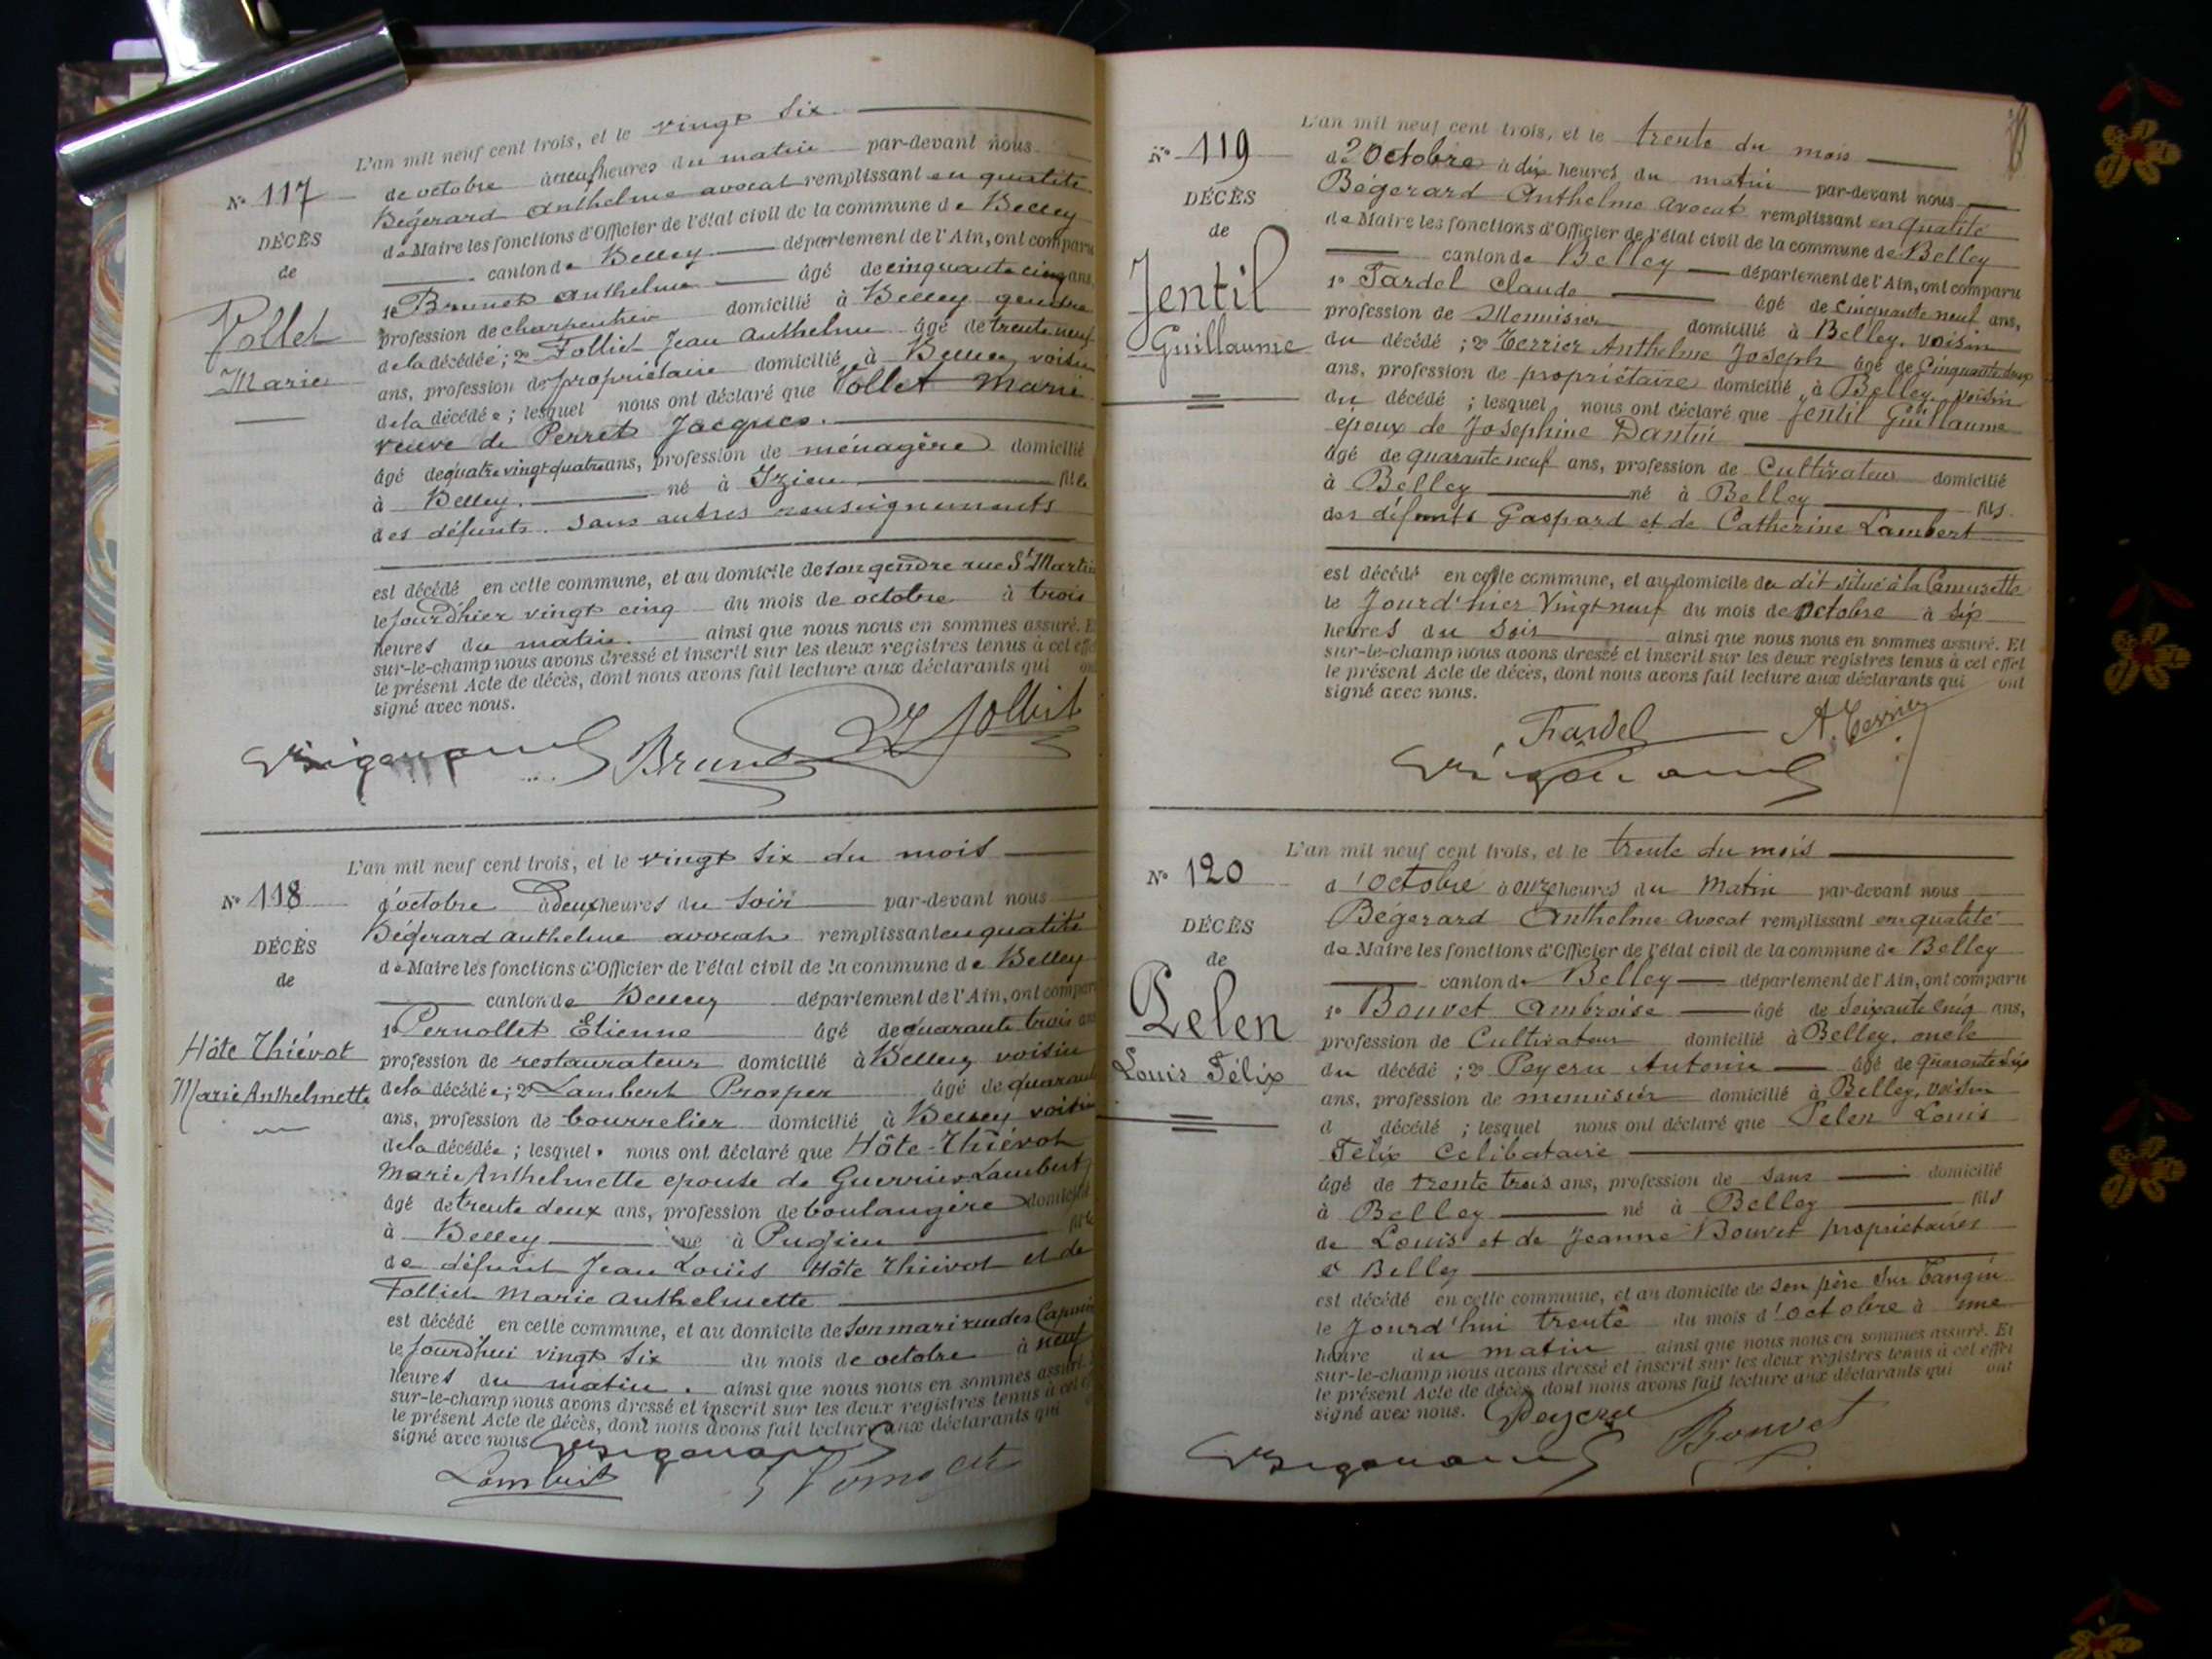 L'an mil neuf cent trois, et le vingt six
N° 117
de octobre à neuf heures du matin par-devant nous
Bégerard Anthelme avocat remplissant en qualité
DÉCÈS
de Maire les fonctions d'Officier de l'état civil de la commune de Belley
de
canton de Belley département de l'Ain, ont comparu
1° Brunet Anthelme âgé de cinquante cinq ans,
Vollet
profession de charpentier domicilié à Belley gendre
de la décédée ; 2° Folliet Jean Anthelme âgé de trente neuf
Marie
ans, profession de propriétaire domicilié à Belley voisin
de la décédée ; lesquel nous ont déclaré que Vollet Marie
veuve de Perret Jacques.
âgé de quatre vingt quatre ans, profession de ménagère domicilié
à Belley. né à Izieu fille
des défunts. Sans autres renseignements
est décédé en cette commune, et au domicile de son gendre rue St Martin
le jourd'hier vingt cinq du mois de octobre à trois
heures du matin. ainsi que nous nous en sommes assuré. E
sur-le-champ nous avons dressé et inscrit sur les deux registres tenus à cet effet
le présent Acte de décès, dont nous avons fait lecture aux déclarants qui ont
signé avec nous.
Brunet Folliet
L'an mil neuf cent trois, et le vingt six du mois
N° 118
d'octobre à deux heures du soir par-devant nous
Bégerard Anthelme avocat remplissant en qualité
DÉCÈS
de Maire les fonctions d'Officier de l'état civil de la commune de Belley
de
canton de Belley département de l'Ain, ont compar
1° Pernollet Etienne âgé de quarante trois ans
Hôte Thiévot
profession de restaurateur domicilié à Belley voisin
Marie Anthelmette
de la décédée ; 2° Lambert Prosper âgé de quarante
ans, profession de bourrelier domicilié à Belley voisin
de la décédée ; lesquel nous ont déclaré que Hôte-Thiévot
Marie Anthelmette epouse de Guerrier Lambert
âgé de trente deux ans, profession de boulangère domicilié
à Belley né à Pugieu fille
de défunt Jean Louis Hôte Thiévot et de
Folliet Marie Anthelmette
est décédé en cette commune, et au domicile de son mari rue des Capucins
le jourd'hui vingt six du mois de octobre à neuf
heures du matin. ainsi que nous nous en sommes assuré.
sur-le-champ nous avons dressé et inscrit sur les deux registres tenus à cet ef
le présent Acte de décès, dont nous avons fait lecture aux déclarants qui
signé avec nous
Lambert
L'an mil neuf cent trois, et le trente du mois
N° 119
d'Octobre à dix heures du matin par-devant nous
Bégerard Anthelme Avocat remplissant en qualité
DÉCÈS
de Maire les fonctions d'Officier de l'état civil de la commune de Belley
de
canton de Belley département de l'Ain, ont comparu
1° Tardel Claude âgé de cinquante neuf ans,
Jentil
profession de Menuisier domicilié à Belley, voisin
Guillaume
du décédé ; 2° Terrier Anthelme Joseph âgé de Cinquante deux
ans, profession de propriétaire domicilié à Belley. voisin
du décédé ; lesquel nous ont déclaré que Jentil Guillaume
époux de Joséphine Dantin
âgé de quarante neuf ans, profession de Cultivateur domicilié
à Belley né à Belley fils
des défunts Gaspard et de Catherine Lambert
est décédé en cette commune, et au domicile du dit situé à la Camusette
le Jourd'hier Vingt neuf du mois de octobre à six
heures du soir ainsi que nous nous en sommes assuré. Et
sur-le-champ nous avons dressé et inscrit sur les deux registres tenus à cet effet
le présent Acte de décès, dont nous avons fait lecture aux déclarants qui ont
signé avec nous.
Tardel A. Terrier
L'an mil neuf cent trois, et le trente du mois
N° 120
d'Octobre à onze heures du Matin par-devant nous
Bégerard Anthelme Avocat remplissant en qualité
DÉCÈS
de Maire les fonctions d'Officier de l'état civil de la commune de Belley
de
canton de Belley département de l'Ain, ont comparu
1° Bouvet Ambroise âgé de Soixante cinq ans,
Pelen
profession de Cultivateur domicilié à Belley, oncle
Louis Félix
du décédé ; 2° Peycru Antonin âgé de quarante six
ans, profession de menuisier domicilié à Belley, voisin
d décédé ; lesquel nous ont déclaré que Pelen Louis
Félix Célibataire
âgé de trente trois ans, profession de sans domicilié
à Belley né à Belley fils
de Louis et de Jeanne Bouvet propriétaires
à Belley
est décédé en cette commune, et au domicile de son père Sur Tangin
le Jourd'hui trente du mois d'octobre à une
heure du matin ainsi que nous nous en sommes assuré. Et
sur-le-champ nous avons dressé et inscrit sur les deux registres tenus à cet effet
le présent Acte de décès, dont nous avons fait lecture aux déclarants qui ont
signé avec nous. Peycru
Bouvet